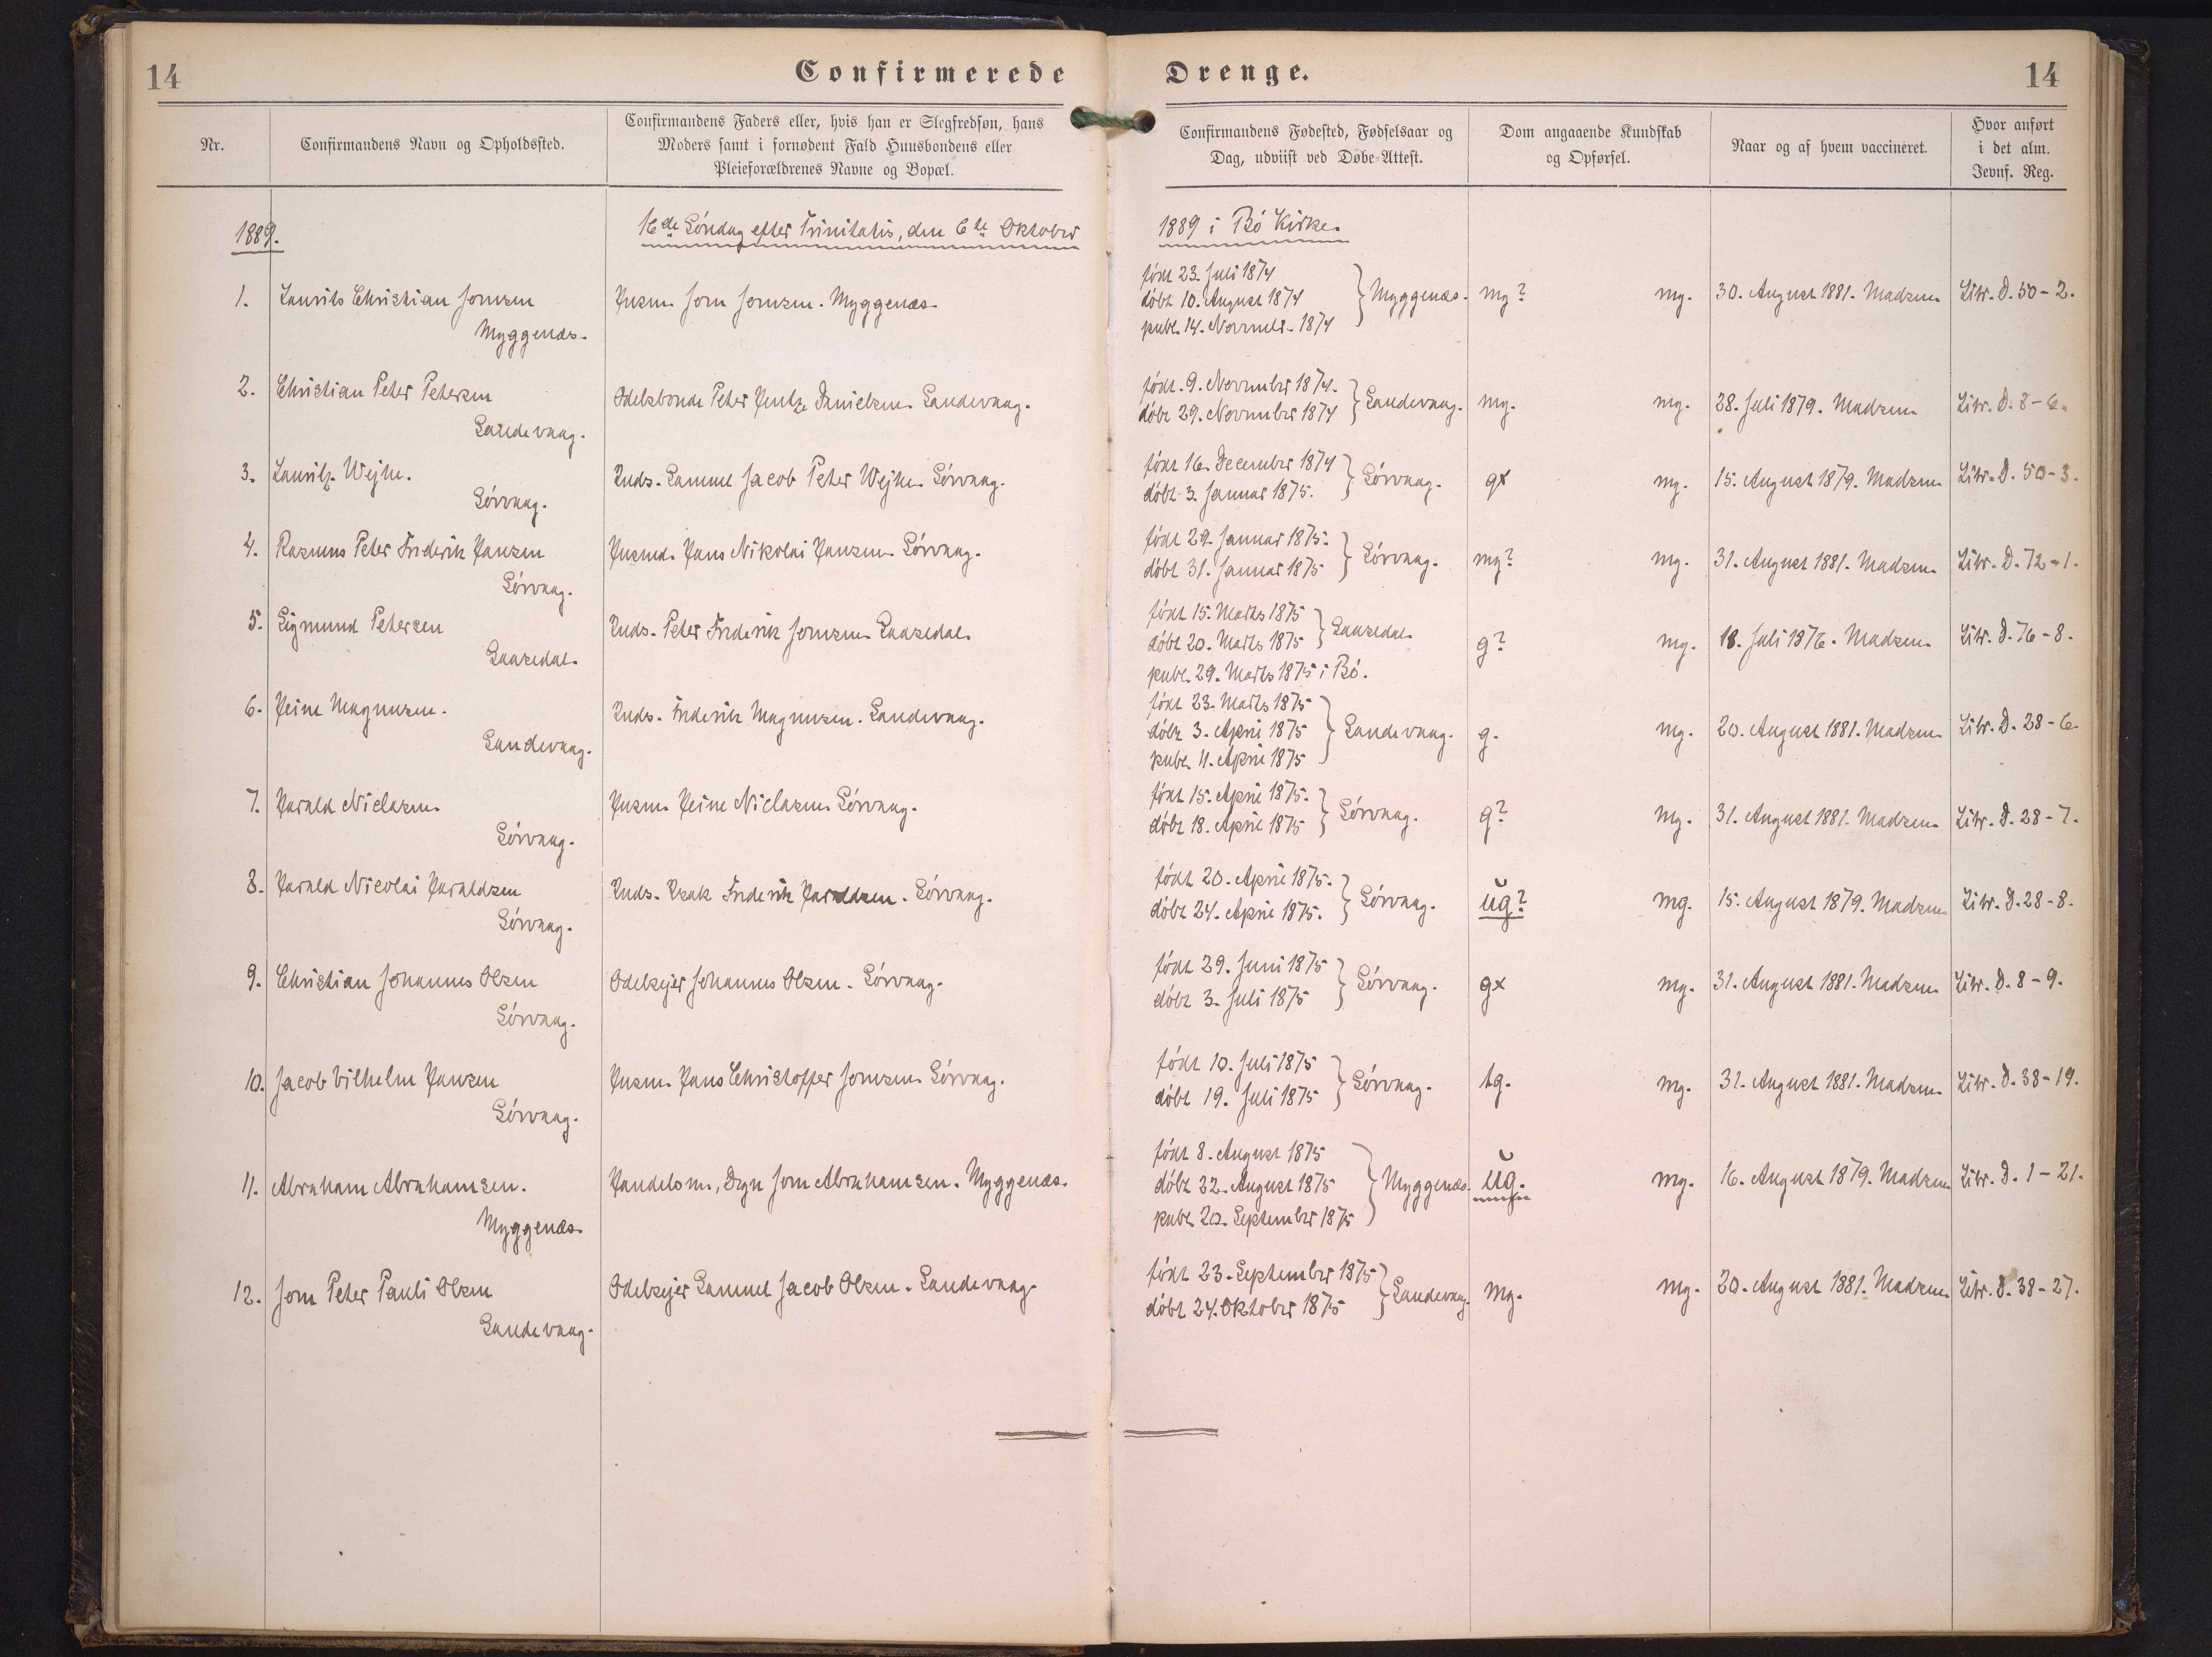 14
Confirmerede
Nr.
Confirmandens Navn og Opholdssted.
Confirmandens Faders eller, hvis han er Slegfredsøn, hans
Moders samt i fornødent Fald Huusbondens eller
Pleieforældrenes Navne og Bopæl.
Drenge.
14
Confirmandens Fødested, Fødselsaar og
Dag, udviist ved Døbe-Attest.
Dom angaaende Kundskab
og Opførsel.
Naar og af hvem vaccineret.
Hvor anført
i det alm.
Jevnf. Reg.
1889. 16de Söndag efter Trinitatis, den 6te Oktober 1889 i Bö Kirke.
1. Laurits Christian Joensen
Myggenæs.
Husm. Joen Joensen. Myggenæs.
födt 23. Juli 1874
döbt 10. August 1874
publ. 14. Novembr. 1874
Myggenæs. mg? mg. 30. August 1881. Madsen Litr. D. 50-2.
2. Christian Peter Petersen
Sandevaag.
Odelsbonde Peter Hentze Danielsen. Sandevaag.
födt. 9. November 1874.
döbt 29. November 1874
Sandevaag. mg. mg. 28. Juli 1879. Madsen Litr. D. 8-6.
3. Lauritz Wejhe.
Sörvaag.
Inds. Samuel Jacob Peter Wejhe. Sörvaag.
födt 16. December 1874
döbt 3. Januar 1875.
Sörvaag. gx mg. 15. August 1879. Madsen Litr. D. 50-3.
4. Rasmus Peter Frederik Hansen
Sörvaag.
Husmd. Hans Nikolai Hansen. Sörvaag.
födt 29. Januar 1875.
döbt 31. Januar 1875
Sörvaag. mg? mg. 31. August 1881. Madsen. Litr. D. 72-1.
5. Sigmund Petersen
Gaasedal.
Inds. Peter Frederik Joensen. Gaasedal.
födt 15. Marts 1875
döbt 20. Marts 1875
publ. 29. Marts 1875 i Bö.
Gaasedal. g? mg. 18. Juli 1876. Madsen. Litr. D. 76-8.
6. Heine Magnusen.
Sandevaag.
Inds. Frederik Magnusen. Sandevaag.
födt 23. Marts 1875
döbt 3. April 1875
publ. 11. April 1875
Sandevaag. g. mg. 20. August 1881. Madsen. Litr. D. 28-6.
7. Harald Niclasen.
Sörvaag.
Husm. Heine Niclasen. Sörvaag.
födt 15. April 1875.
döbt 18. April 1875
Sörvaag. g? mg. 31. August 1881. Madsen. Litr. D. 28-7.
8. Harald Nicolai Haraldsen
Sörvaag.
Inds. Isak Frederik Haraldsen. Sörvaag.
födt 20. April 1875.
döbt 24. April 1875.
Sörvaag. ug? mg. 15. August 1879. Madsen Litr. D. 28-8.
9. Christian Johannes Olsen
Sörvaag.
Odelsejer Johannes Olsen. Sörvaag.
födt 29. Juni 1875
döbt 3. Juli 1875
Sörvaag. gx mg. 31. August 1881. Madsen. Litr. D. 8-9.
10. Jacob Vilhelm Hansen
Sörvaag.
Husm. Hans Christoffer Joensen. Sörvaag.
födt 10. Juli 1875
döbt 19. Juli 1875
Sörvaag. tg. mg. 31. August 1881. Madsen. Litr. D. 38-19.
11. Abraham Abrahamsen.
Myggenæs.
Handelsm., Degn Joen Abrahamsen. Myggenæs.
födt 8. August 1875
döbt 22. August 1875
publ. 20. September 1875
Myggenæs. ug. mg. 16. August 1879. Madsen Litr. D. 1-21.
12. Joen Peter Pauli Olsen
Sandevaag.
Odelsejer Samuel Jacob Olsen. Sandevaag.
födt 23. September 1875
döbt 24. Oktober 1875
Sandevaag. mg. mg. 20. August 1881. Madsen. Litr. D. 38-27.